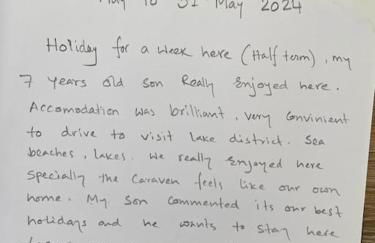 May 10 31 May 2024
Holiday for a week here (Half term), my
7 years old son Really Enjoyed here.
Accomodation was brilliant, very convinient
to drive to visit lake district. Sea
beaches, lakes. We really Enjoyed here
specially the caraven feels like our own
home. My son commented its our best
holidays and he wants to stay here